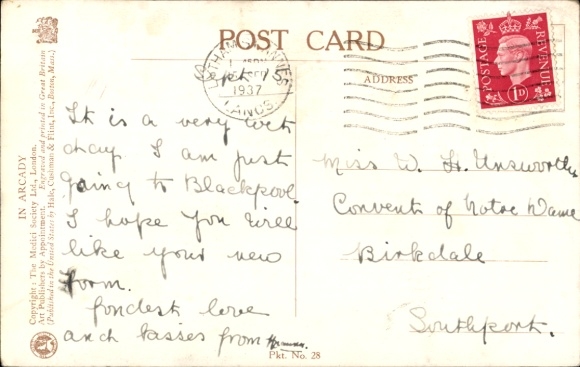 POST CARD
ADDRESS
LYTHAM ST ANNES
1937
LANCS
Sept. 15
POSTAGE
REVENUE
1D
It is a very wet
day I am just
going to Blackpool.
I hope you will
like your new
form.
fondest love
and kisses from
Miss W. H. Unsworth
Convent of Notre Dame
Birkdale
Southport.
IN ARCADY
Copyright: The Medici Society Ltd., London.
Art Publishers by Appointment. Engraved and printed in Great Britain
(Published in the United States by Hale, Cushman & Flint, Inc., Boston, Mass.)
Pkt. No. 28